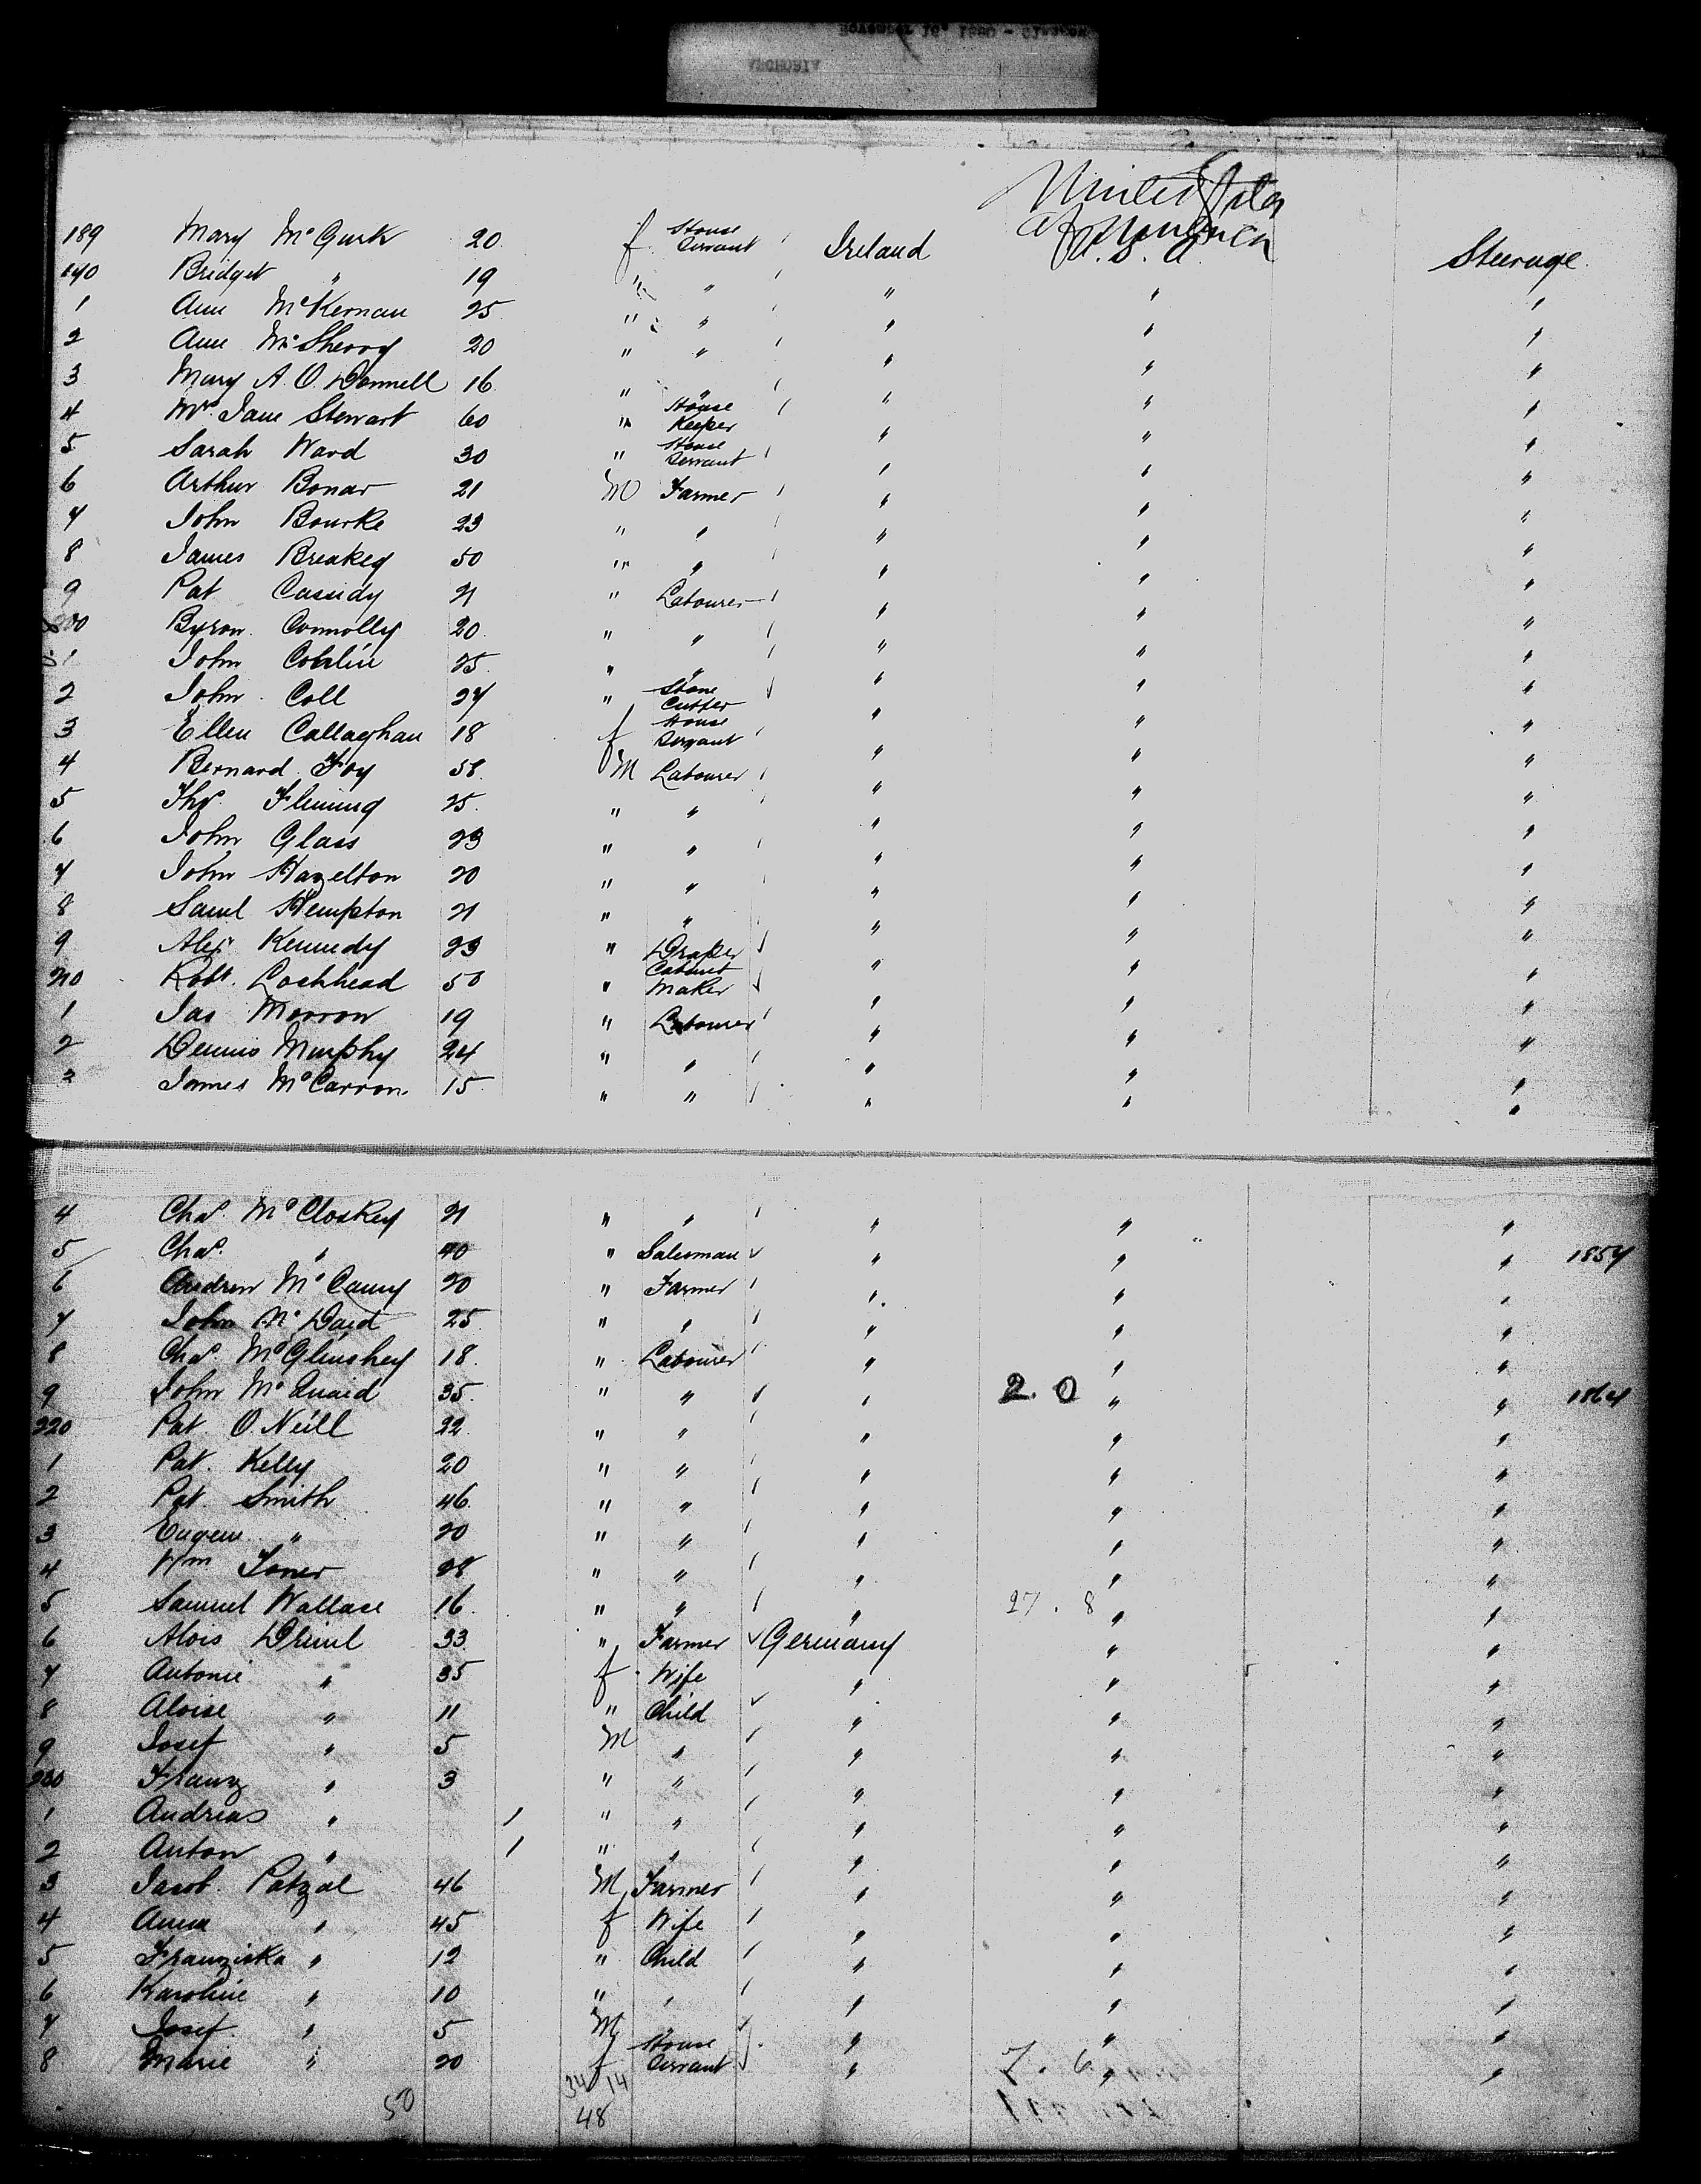 United States
of America
189 Mary McGurk 20 f House Servant Ireland U.S.A. Steerage
190 Bridget " 19 " " " " "
1 Ann McKernan 25 " " " " "
2 Ann McSherry 20 " " " " "
3 Mary A. O Donnell 16 " " " " "
4 Mrs. Jane Stewart 60 " House Keeper " " "
5 Sarah Ward 30 " House Servant " " "
6 Arthur Bonar 21 M Farmer " " "
7 John Bourke 23 " " " " "
8 James Breakey 50 " " " " "
9 Pat Cassidy 21 " Labourer " " "
200 Byron Connolly 20 " " " " "
1 John 25 " " " " "
2 John Coll 27 " Stone Cutter " " "
3 Ellen Callaghan 18 f House Servant " " "
4 Bernard Foy 58 M Labourer " " "
5 Thos. Fleming 25 " " " " "
6 John Glass 23 " " " " "
7 John Hazelton 20 " " " " "
8 Saml Hempton 21 " " " " "
9 Alex Kennedy 23 " Draper " " "
210 Robt. Lochhead 50 " Cabinet Maker " " "
1 Jas Morrow 19 " Labourer " " "
2 Dennis Murphy 24 " " " " "
3 James McCarron 15 " " " " "
4 Chas. McCloskey 21 " " " " "
5 Chas. " 40 " Salesman " " " 1857
6 Andrew McCanny 20 " Farmer " " "
7 John McDaid 25 " " " " "
8 Chas. McGlinshey 18 " Labourer " " "
9 John McQuaid 35 " " " 2.0 " " 1864
220 Pat O.Neill 22 " " " " "
1 Pat. Kelly 20 " " " " "
2 Pat Smith 46 " " " " "
3 Eugene " 20 " " " " "
4 Wm Toner 28 " " " " "
5 Samuel Wallace 16 " " " 27.8 " "
6 Alois 33 " Farmer Germany " "
7 Antonie " 35 f Wife " " "
8 Aloise " 11 " Child " " "
9 Josef " 5 M " " " "
230 Franz " 3 " " " " "
1 Andreas " 1 " " " " "
2 Anton " 1 " " " " "
3 Jacob Patzal 46 M Farmer " " "
4 Anna " 45 f Wife " " "
5 Franziska " 12 " Child " " "
6 Karoline " 10 " " " " "
7 Josef " 5 M " " " "
8 Marie " 20 f House Servant " 7.6 " "
34 14
50 48